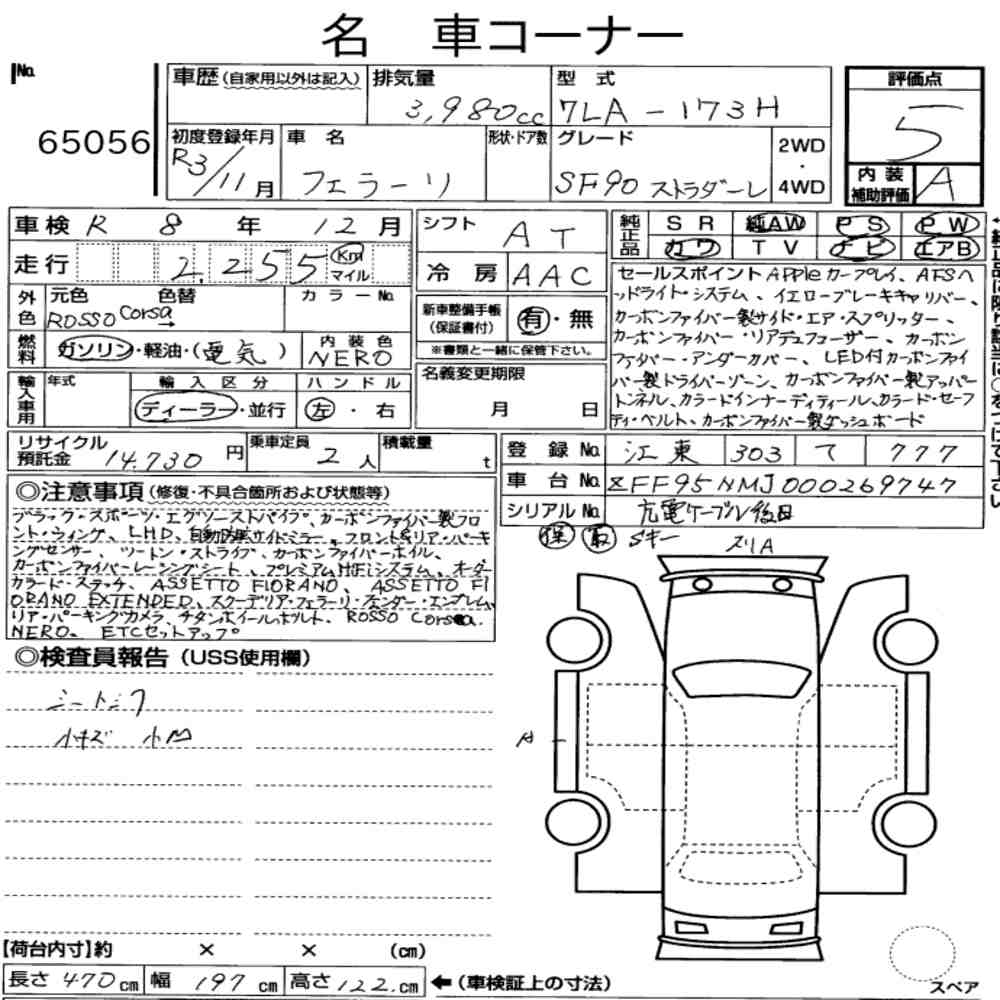 名 車コーナー
No.
65056
車歴(自家用以外は記入)
排気量
3,980cc
型 式
7LA-173H
評価点
5
初度登録年月
R3/11月
車 名
フェラーリ
形状・ドア数
グレード
SF90 ストラダーレ
2WD
・
4WD
内 装
補助評価
A
車検 R 8 年 12月
走行 2,255 Km マイル
外色
元色
ROSSO Corsa
色替
→
カラーNo.
燃料
ガソリン・軽油・(電気)
内装色
NERO
輸入車用
年式
輸 入 区 分
ディーラー・並行
ハ ン ド ル
左・右
シフト
AT
冷 房
AAC
新車整備手帳
(保証書付)
有・無
※書類と一緒に保管下さい。
名義変更期限
月 日
純正品
SR 純AW PS PW
カワ TV ナビ エアB
セールスポイント Appleカープレイ、AFSヘ
ッドライト・システム、イエローブレーキキャリパー、
カーボンファイバー製サイド・エア・スプリッター、
カーボンファイバー・リアデュフューザー、カーボン
ファイバー・アンダーカバー、LED付カーボンファイ
バー製ドライバーゾーン、カーボンファイバー製アッパー
トンネル、カラードインナーディティール、カラード・セーフ
ティ・ベルト、カーボンファイバー製ダッシュボード
リサイクル
預託金
14,730 円
乗車定員
2 人
積載量
t
登 録 No.
江東 303 て 777
車 台 No.
ZFF95NMJ000269747
シリアルNo.
充電ケーブル後日
保 取 Sキー
スリA
◎注意事項(修復・不具合箇所および状態等)
ブラック・スポーツ・エグゾーストパイプ、カーボンファイバー製フロ
ント・ウィング、LHD、自動防眩サイドミラー、フロント&リア・パーキ
ングセンサー、ツートン・ストライプ、カーボンファイバーホイル、
カーボンファイバーレーシングシート、プレミアムHiFiシステム、オーダー
カラード・ステッチ、ASSETTO FIORANO、ASSETTO FI
ORANO EXTENDED、スクーデリア・フェラーリ・フェンダー・エンブレム、
リア・パーキングカメラ、チタンホイールボルト、ROSSO Corsa、
NERO。ETCセットアップ
◎検査員報告(USS使用欄)
シートシワ
小キズ 小凹
A
【荷台内寸】約 × × (cm)
長さ 470cm
幅 197cm
高さ 122.cm
←(車検証上の寸法)
スペア